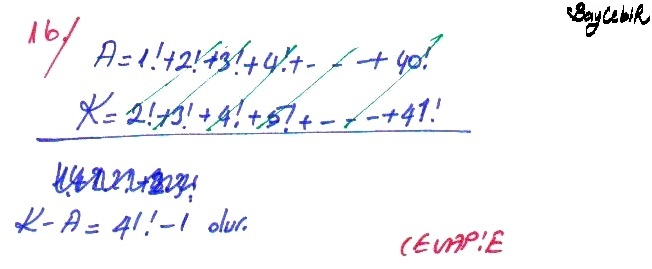 BayCebiR
16/
A=1!+2!+3!+4!+- - - + 40!
K=2!+3!+4!+5!+- - - +41!
K-A=41!-1 olur.
CEVAP:E